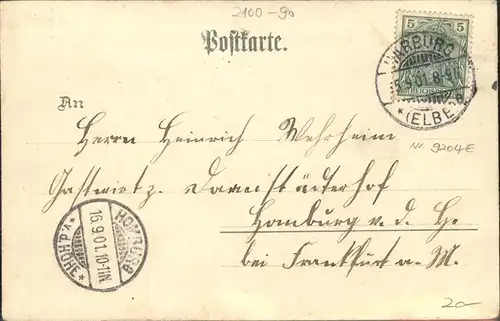 2100-90
Postkarte.
5 5
HARBURG
9.01.8-9
*(ELBE
An
Herrn Heinrich Wehrheim
Nr. 9204E
Gastwirt z. Darmstädterhof
Homburg v. d. H.
bei Frankfurt a. M.
HOMBURG
16.9.01.10-11N.
*v.d.HÖHE*
20-